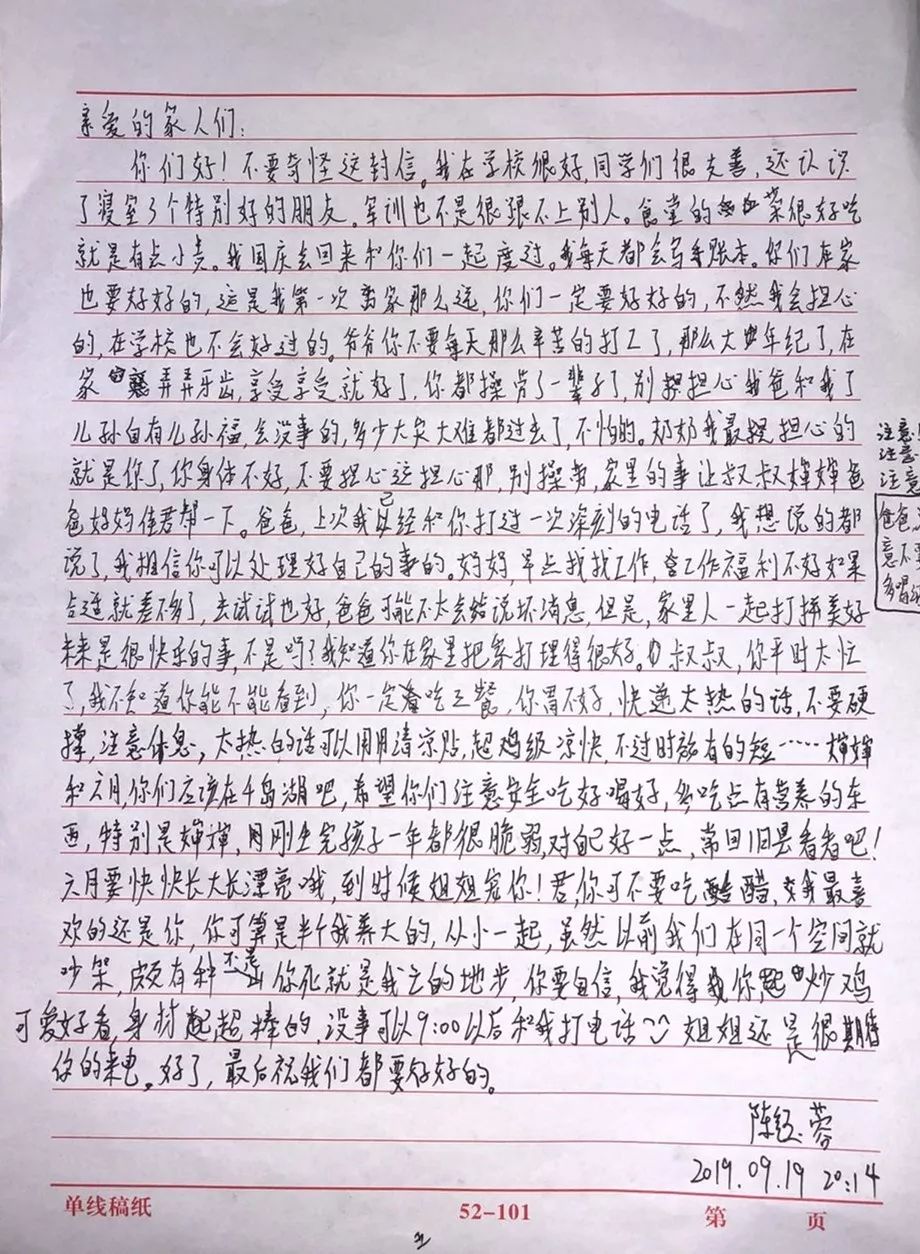 亲爱的家人们：
你们好！不要奇怪这封信。我在学校很好，同学们很友善，还认识
了寝室3个特别好的朋友。军训也不是很跟不上别人。食堂的菜很好吃
就是有点小贵。我国庆会回来和你们一起度过。我每天都会写手账本。你们在家
也要好好的，这是我第一次离家那么远，你们一定要好好的，不然我会担心
的，在学校也不会好过的。爷爷你不要每天那么辛苦的打工了，那么大年纪了，在
家弄弄牙齿，享受享受就好了，你都操劳了一辈子了，别担心我爸和我了
儿孙自有儿孙福，会没事的，多少大灾大难都过去了，不怕的。奶奶我最担心的
就是你了，你身体不好，不要担心这担心那，别操劳，家里的事让叔叔婶婶爸
爸妈妈佳君帮一下。爸爸，上次我已经和你打过一次深刻的电话了，我想说的都
说了，我相信你可以处理好自己的事的。妈妈，早点找找工作，工作福利不好如果
合适就差不多了，去试试也好，爸爸可能不太会说坏消息，但是，家里人一起打拼美好
未来是很快乐的事，不是吗？我知道你在家里把家打理得很好。叔叔，你平时太忙
了，我不知道你能不能看到，你一定要吃三餐，你胃不好，快递太热的话，不要硬
撑，注意休息，太热的话可以用用清凉贴，超级凉快，不过时效有的短……婶婶
和六月，你们应该在千岛湖吧，希望你们注意安全吃好喝好，多吃点有营养的东
西，特别是婶婶，刚生完孩子一年都很脆弱，对自己好一点，常回旧县看看吧！
六月要快快长大长漂亮哦，到时候姐姐宠你！君，你可不要吃醋，我最喜
欢的还是你，你可算是半个我养大的，从小一起，虽然以前我们在同一个空间就
吵架，颇有种不是你死就是我亡的地步，你要自信，我觉得你超炒鸡
可爱好看，身材超棒的，没事可以9:00以后和我打电话 姐姐还是很期待
你的来电。好了，最后祝我们都要好好的。
陈 蓉
2019.09.19 20:14
注意！
注意
注意
爸爸
意不要
多喝
单线稿纸 52-101 第 页